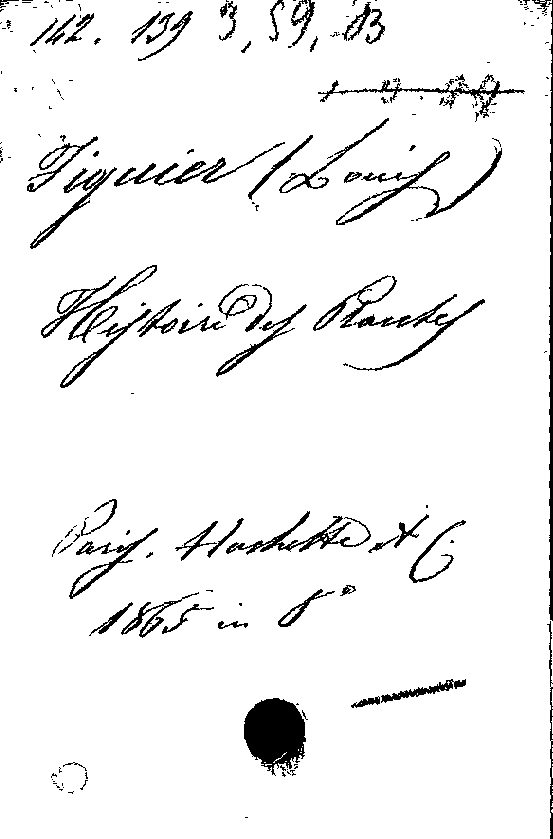 142. 139 3, 59, B
Figuier (Louis)
Histoire des Plantes
Paris. Hachette et C.
1865 in 8°